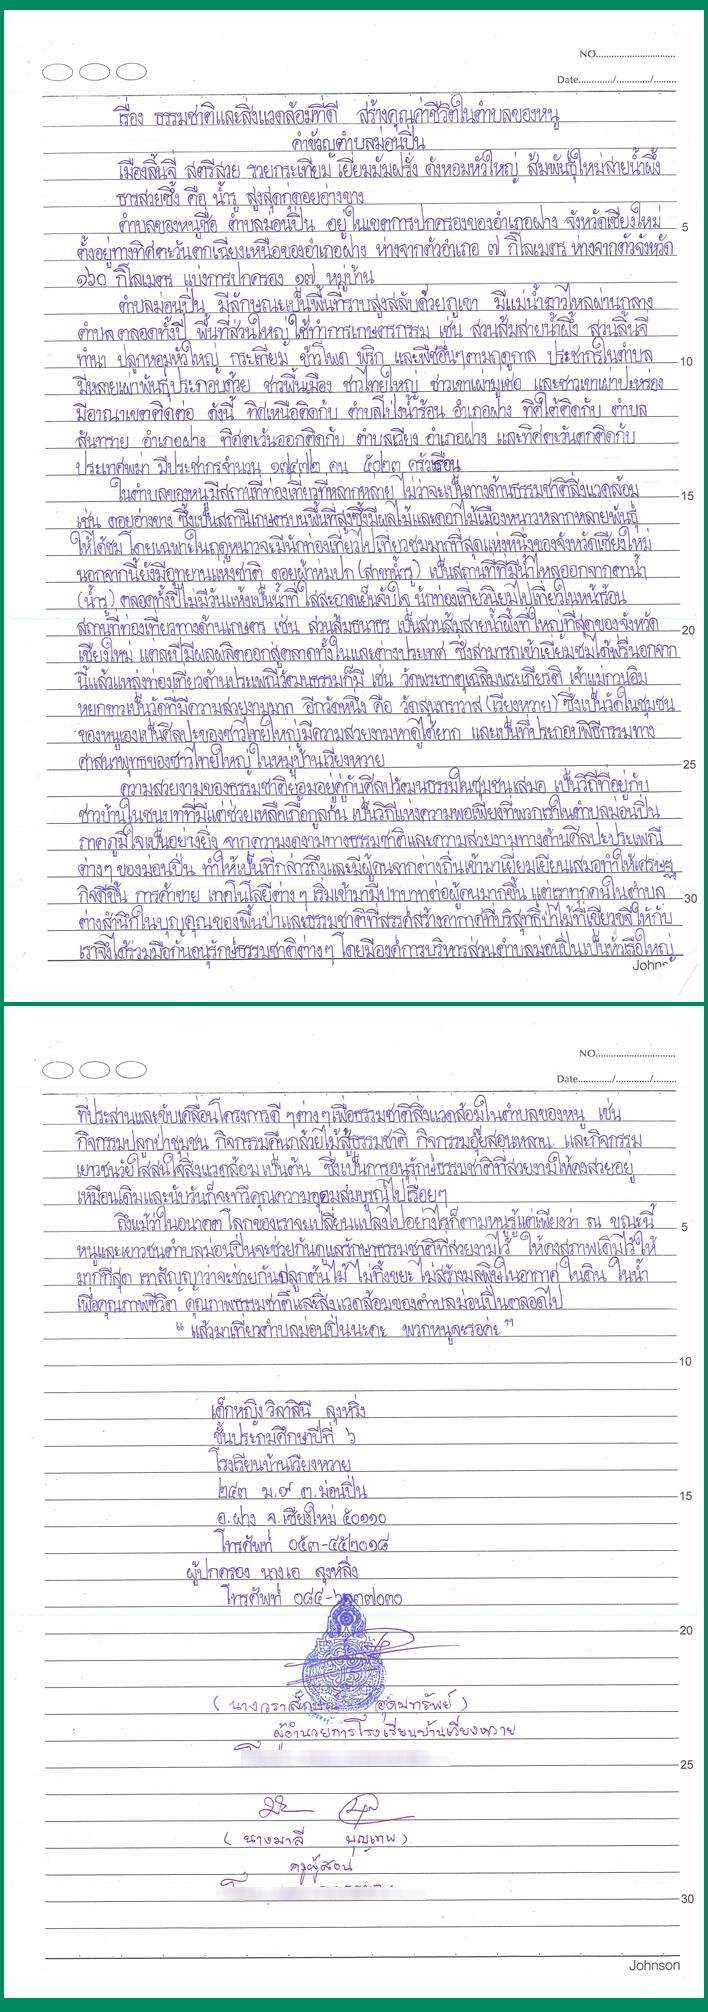 NO.............................
Date............/............/........
เรื่อง ธรรมชาติและสิ่งแวดล้อมที่ดี สร้างคุณค่าชีวิตในตำบลของหนู
คำขวัญตำบลม่อนปิ่น
เมืองลิ้นจี่ สตรีสวย รวยกระเทียม เยี่ยมมันฝรั่ง ดังหอมหัวใหญ่ ส้มพันธุ์ใหม่สายน้ำผึ้ง
ธารสวยซึ้ง คือ น้ำรู สูงสุดกู่ดอยอ่างขาง
ตำบลของหนูชื่อ ตำบลม่อนปิ่น อยู่ในเขตการปกครองของอำเภอฝาง จังหวัดเชียงใหม่
5
ตั้งอยู่ทางทิศตะวันตกเฉียงเหนือของอำเภอฝาง ห่างจากตัวอำเภอ ๗ กิโลเมตร ห่างจากตัวจังหวัด
๑๖๐ กิโลเมตร แบ่งการปกครอง ๑๗ หมู่บ้าน
ตำบลม่อนปิ่น มีลักษณะเป็นพื้นที่ราบสูงสลับด้วยภูเขา มีแม่น้ำมาวไหลผ่านกลาง
ตำบล ตลอดทั้งปี พื้นที่ส่วนใหญ่ใช้ทำการเกษตรกรรม เช่น สวนส้มสายน้ำผึ้ง สวนลิ้นจี่
ทำนา ปลูกหอมหัวใหญ่ กระเทียม ข้าวโพด พริก และพืชอื่นๆตามฤดูกาล ประชากรในตำบล
10
มีหลายเผ่าพันธุ์ประกอบด้วย ชาวพื้นเมือง ชาวไทยใหญ่ ชาวเขาเผ่ามูเซอ และชาวเขาเผ่าปะหร่อง
มีอาณาเขตติดต่อ ดังนี้ ทิศเหนือติดกับ ตำบลโป่งน้ำร้อน อำเภอฝาง ทิศใต้ติดกับ ตำบล
สันทราย อำเภอฝาง ทิศตะวันออกติดกับ ตำบลเวียง อำเภอฝาง และทิศตะวันตกติดกับ
ประเทศพม่า มีประชากรจำนวน ๑๗๔๗๒ คน ๕๐๒๓ ครัวเรือน
ในตำบลของหนูมีสถานที่ท่องเที่ยวที่หลากหลาย ไม่ว่าจะเป็นทางด้านธรรมชาติสิ่งแวดล้อม
15
เช่น ดอยอ่างขาง ซึ่งเป็นสถานีเกษตรบนพื้นที่สูงซึ่งมีผลไม้และดอกไม้เมืองหนาวหลากหลายพันธุ์
ให้ได้ชม โดยเฉพาะในฤดูหนาวจะมีนักท่องเที่ยวไปเที่ยวชมมากที่สุดแห่งหนึ่งของจังหวัดเชียงใหม่
นอกจากนี้ยังมีอุทยานแห่งชาติ ดอยผ้าห่มปก (สาขาน้ำรู) เป็นสถานที่ที่มีน้ำไหลออกจากตาน้ำ
(น้ำรู) ตลอดทั้งปีไม่มีวันแห้งเป็นน้ำที่ใสสะอาดเย็นฉ่ำใจ นักท่องเที่ยวนิยมไปเที่ยวในหน้าร้อน
สถานที่ท่องเที่ยวทางด้านเกษตร เช่น สวนส้มธนาธร เป็นสวนส้มสายน้ำผึ้งที่ใหญ่ที่สุดของจังหวัด
20
เชียงใหม่ แต่ละปีมีผลผลิตออกสู่ตลาดทั้งในและต่างประเทศ ซึ่งสามารถเข้าเยี่ยมชมได้ฟรีนอกจาก
นี้แล้วแหล่งท่องเที่ยวด้านประเพณีวัฒนธรรมก็มี เช่น วัดพระธาตุเฉลิมพระเกียรติ เจ้าแม่กวนอิม
หยกขาวเป็นวัดที่มีความสวยงามมาก อีกวัดหนึ่ง คือ วัดสุนทราวาส (เวียงหวาย) ซึ่งเป็นวัดในชุมชน
ของหนูเองเป็นศิลปะของชาวไทยใหญ่มีความสวยงามหาดูได้ยาก และเป็นที่ประกอบพิธีกรรมทาง
ศาสนาพุทธของชาวไทยใหญ่ในหมู่บ้านเวียงหวาย
25
ความสวยงามของธรรมชาติย่อมอยู่คู่กับศิลปวัฒนธรรมในชุมชนเสมอ เป็นวิถีที่อยู่กับ
ชาวบ้านในชนบทที่มีแต่ช่วยเหลือเกื้อกูลกัน เป็นวิถีแห่งความพอเพียงที่พวกเราในตำบลม่อนปิ่น
ภาคภูมิใจเป็นอย่างยิ่ง จากความงดงามทางธรรมชาติและความสวยงามทางด้านศิลปะประเพณี
ต่างๆ ของม่อนปิ่น ทำให้เป็นที่กล่าวถึงและมีผู้คนจากต่างถิ่นเข้ามาเยี่ยมเยียนเสมอทำให้เศรษฐ
กิจดีขึ้น การค้าขาย เทคโนโลยีต่างๆ เริ่มเข้ามามีบทบาทต่อผู้คนมากขึ้น แต่เราทุกคนในตำบล
30
ต่างสำนึกในบุญคุณของพื้นป่าและธรรมชาติที่สรรค์สร้างอากาศที่บริสุทธิ์ป่าไม้ที่เขียวขจีให้กับ
เราจึงได้ร่วมมือกันอนุรักษ์ธรรมชาติต่างๆ โดยมีองค์การบริหารส่วนตำบลม่อนปิ่นเป็นหัวเรือใหญ่
Johns
NO.............................
Date............/............/........
ที่ประสานและขับเคลื่อนโครงการดี ๆต่าง ๆเพื่อธรรมชาติสิ่งแวดล้อมในตำบลของหนู เช่น
กิจกรรมปลูกป่าชุมชน กิจกรรมคืนกล้วยไม้สู่ธรรมชาติ กิจกรรมอุ๊ยสอนหลาน และกิจกรรม
เยาวชนวัยใสใส่ใจสิ่งแวดล้อม เป็นต้น ซึ่งเป็นการอนุรักษ์ธรรมชาติที่สวยงามให้คงสวยอยู่
เหมือนเดิมและนับวันก็จะทวีคูณความอุดมสมบูรณ์ไปเรื่อยๆ
ถึงแม้ว่าในอนาคต โลกของเราจะเปลี่ยนแปลงไปอย่างไรก็ตามหนูรู้แต่เพียงว่า ณ ขณะนี้
5
หนูและเยาวชนตำบลม่อนปิ่นจะช่วยกันดูแลรักษาธรรมชาติที่สวยงามไว้ ให้คงสภาพเดิมไว้ให้
มากที่สุด เราสัญญาว่าจะช่วยกันปลูกต้นไม้ ไม่ทิ้งขยะ ไม่สร้างมลพิษในอากาศ ในดิน ในน้ำ
เพื่อคุณภาพชีวิต คุณภาพธรรมชาติและสิ่งแวดล้อมของตำบลม่อนปิ่นตลอดไป
" แล้วมาเที่ยวตำบลม่อนปิ่นนะคะ พวกหนูจะรอค่ะ "
10
เด็กหญิง วิลาสินี ลุงหริ่ง
ชั้นประถมศึกษาปีที่ ๖
โรงเรียนบ้านเวียงหวาย
๒๕๓ ม.๙ ต.ม่อนปิ่น
15
อ.ฝาง จ.เชียงใหม่ ๕๐๑๑๐
โทรศัพท์ ๐๕๓-๔๕๒๐๑๘
ผู้ปกครอง นางเอ ลุงหลิ่ง
โทรศัพท์
20
อุดมทรัพย์ )
ผู้อำนวยการโรงเรียนบ้านเวียงหวาย
25
( นางมาลี บุญเทพ )
ครูผู้สอน
30
Johnson